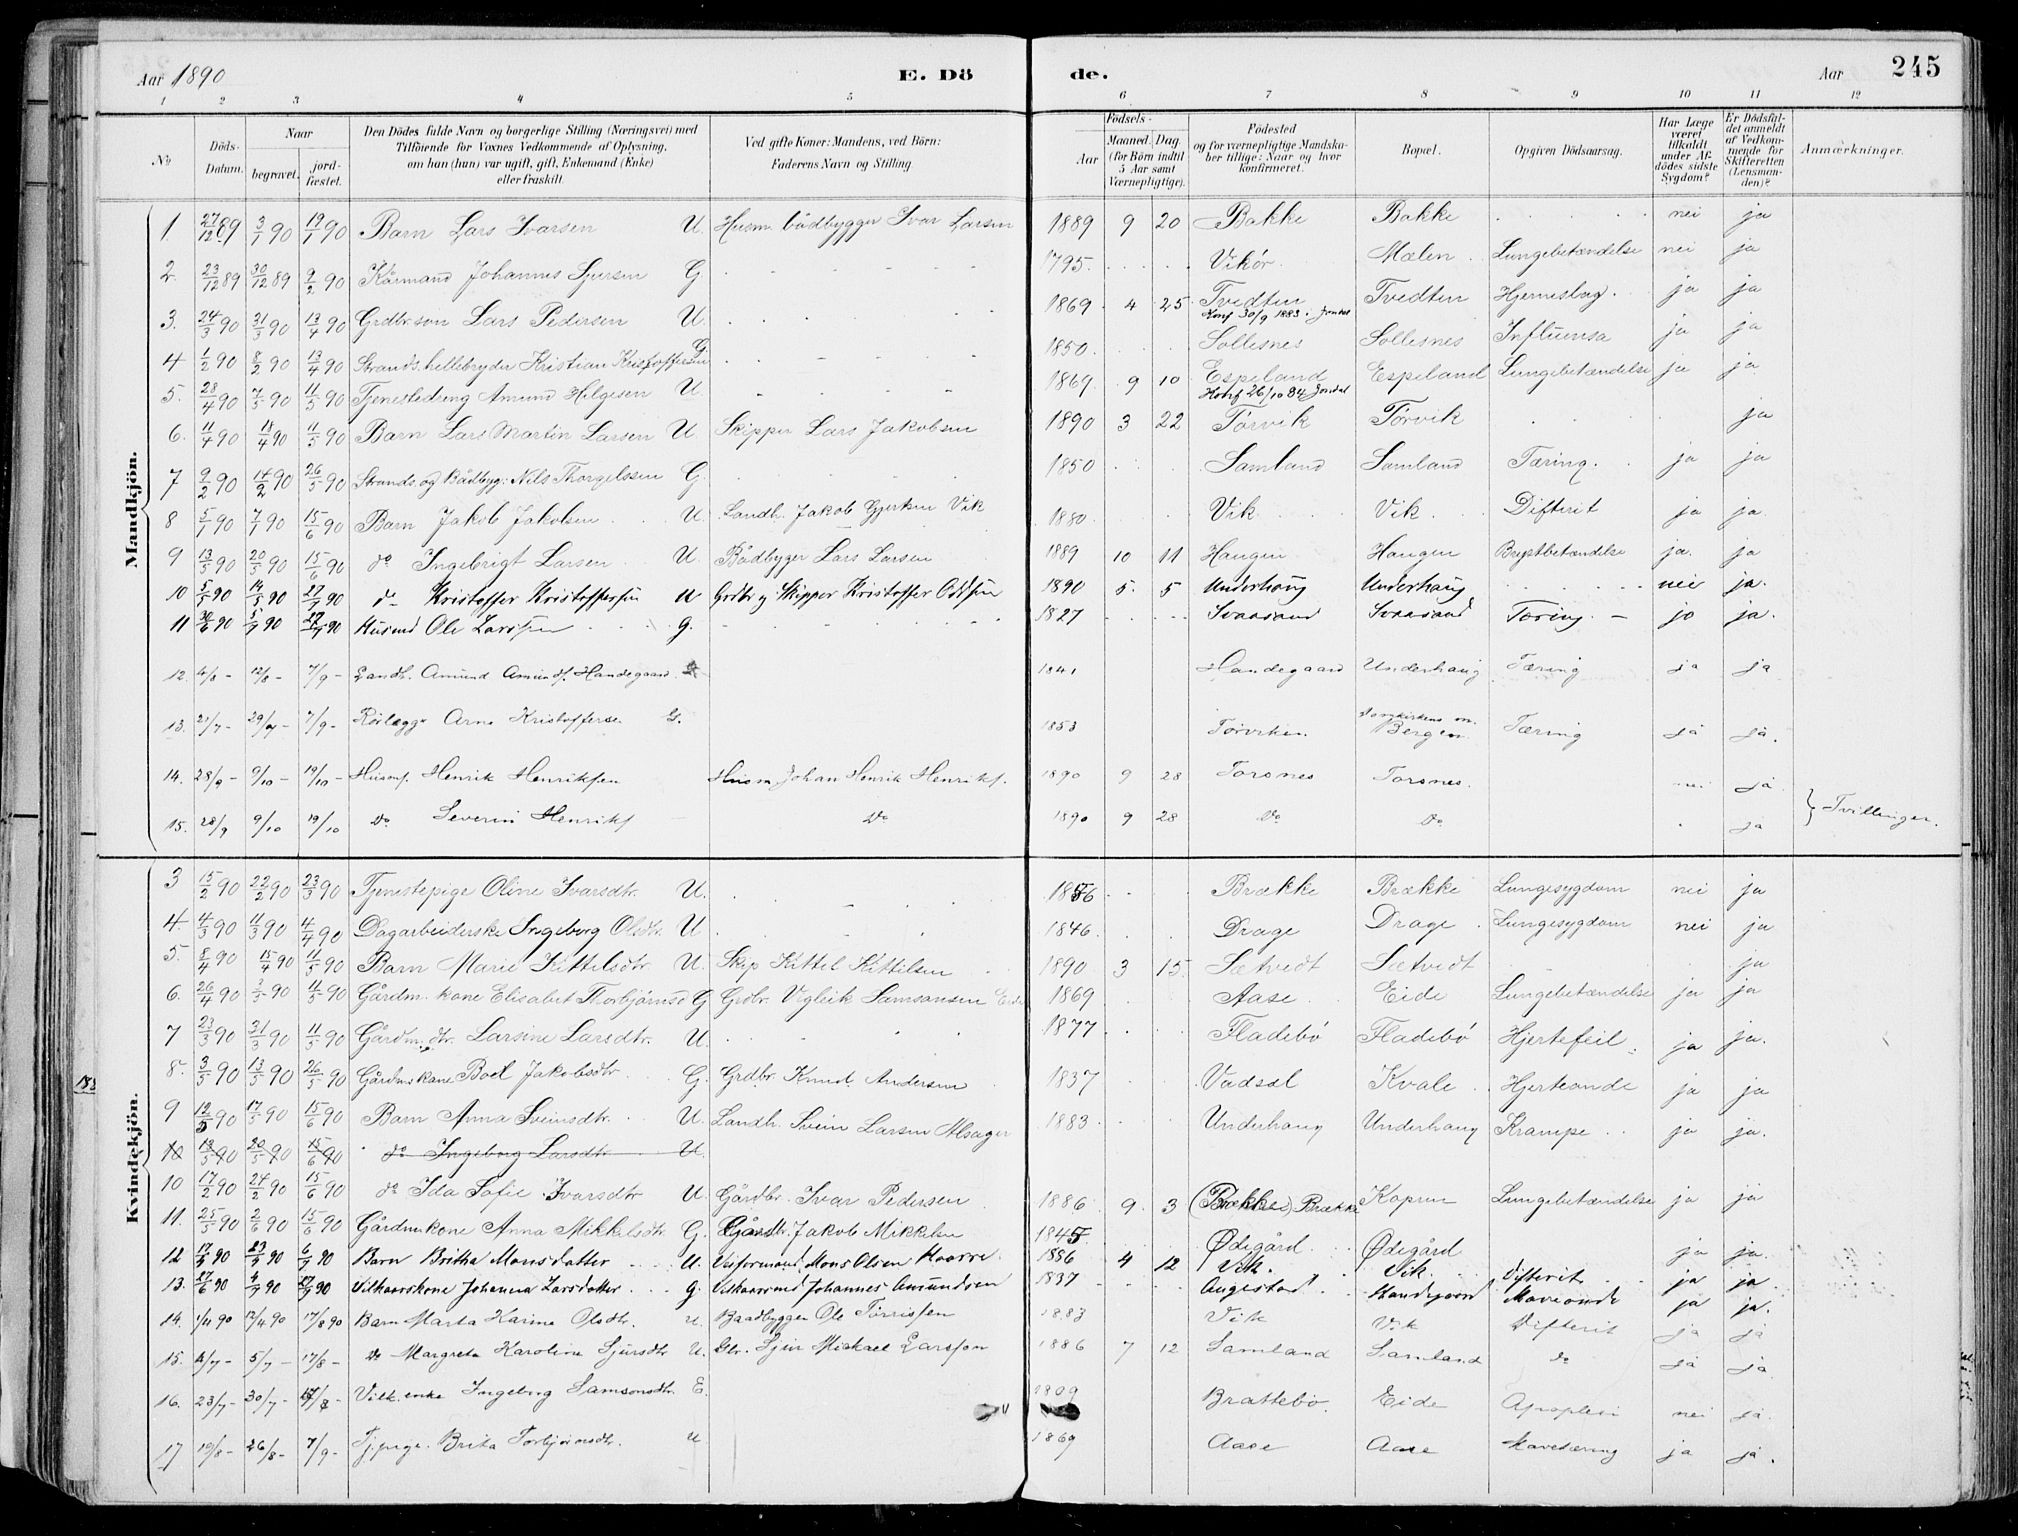 Aar 1890 E. Dö de. Aar 245
1 2 3 4 5 6 7 8 9 10 11 12
No Döds-Datum. Naar begravet. jordfæstet. Den Dödes fulde Navn og borgerlige Stilling (Næringsvei) med Tilföiende for Voxnes Vedkommende af Oplysning, om han (hun) var ugift, gift, Enkemand (Enke) eller fraskilt. Ved gifte Koner: Mandens, ved Börn: Faderens Navn og Stilling. Födsels- Aar Maaned. Dag. (for Börn indtil 5 Aar samt Værnepligtige). Födested og for værnepligtige Mandskaber tillige: Naar og hvor konfirmeret. Bopæl. Opgiven Dödsaarsag. Har Læge været tilkaldt under Afdödes sidste Sygdom? Er Dödsfaldet anmeldt af Vedkommende for Skifteretten (Lensmanden)? Anmærkninger.
Mandkjön.
1. 27/12 89 3/1 90 19/1 90 Barn Lars Ivarsen U. Husm. bådbygger Ivar Larsen 1889 9 20 Bakke Bakke nei ja
2. 23/12 89 30/12 89 9/2 90 Kårmand Johannes Sjursen G 1795. Vikör. Mælen Lungebetændelse nei ja
3. 24/3 90 31/3 90 13/4 90 Grdbr.søn Lars Pedersen U. 1869 4 25 Tvedten Konf 30/9 1883 i Jondal Tvedten Hjerneslag. ja ja
4 1/2 90 8/2 90 13/4 90 Strands. hellebryder Kristian Kristoffersen G 1850. Sollesnes Sollesnes Influensa ja ja
5. 28/4 90 7/5 90 11/5 90 Tjenestedreng Amund Helgesen U. 1869. 9 10 Espeland Konf 26/10 84 Jondal Espeland Lungebetændelse ja ja
6. 11/4 90 18/4 90 11/5 90 Barn Lars Martin Larsen U. Skipper Lars Jakobsen 1890 3 22 Tørvik Tørvik ja
7 9/2 90 14/2 90 26/5 90 Strands. og Bådbyg: Nils Thorgelssen G. 1850 Samland Samland Tæring. ja ja
8 5/1 90 7/1 90 15/6 90 Barn Jakob Jakobsen U Landh. Jakob Gjertsen Vik 1880. Vik Vik Difterit ja ja.
9 13/5 90 20/5 90 15/6 90 do Ingebrigt Larsen U. Bådbyger Lars Larsen 1889 10 11 Haugen Haugen Brystbetændelse ja. ja
10 5/5 90 14/5 90 27/7 90 do Kristoffer Kristoffersen U Grdbr og Skipper Kristoffer Oddsen 1890 5 5 Underhaug Underhaug nei ja.
11 30/6 90 5/7 90 27/7 90 Husmd Ole Larssen G. 1827 Svaasand Svaasand Tæring. ja ja.
12. 4/8 - 12/8 - 7/9 - Landh. Amund Amunds. Handegaard 1841 Handegaard Underhaug Tæring ja ja
13. 21/7 - 29/7 - 7/9 - Rørlægger Arne Kristoffersen G. 1853 Tørviken. Domkirkens m. Bergen Tæring ja ja.
14. 28/9 - 9/10 - 19/10 - Husms. Henrik Henriksen Husm Johan Henrik Henriks. 1890 9 28 Torsnes Torsnes. nei ja
15. 28/9 9/10 19/10 do Severin Henriks do 1890 9 28 do do ja Tvillinger.
Kvindekjön.
3 15/2 90 22/2 90 23/3 90 Tjenestepige Oline Ivarsdtr. U. 1856 Brække Brække Lungesygdom nei ja
4. 4/3 90 11/3 90 4/4 90 Dagarbeiderske Ingeborg Olsdtr. U 1846. Drage Drage Lungesygdom nei ja
5. 8/4 90 15/4 90 11/5 90 Barn Marie Kittelsdtr. U. Skip. Kittel Kittilsen 1890 3 15. Sætvedt Sætvedt ja
6. 26/4 90 3/5 90 11/5 90 Gårdm. kone Elisabet Thorbjørnsd G Grdbr. Vigleik Samsonsen Eide 1869 Aase Eide Lungebetændelse ja ja
7 23/3 90 31/3 90 11/5 90 Gårdm. dtr. Larsine Larsdtr. U. 1877 Fladebø Fladebø Hjertefeil ja ja.
8. 3/5 90 13/5 90 26/5 90 Gårdmskone Boel Jakobsdtr. G. Grdbr. Knud Andersen 1837 Vadsel Kvale Hjerteonde ja ja
9 12/5 90 17/5 90 15/6 90 Barn Anna Sveinsdtr. U. Landh. Svein Larsen Alsager 1883 Underhaug Underhaug Krampe ja ja.
10 13/5 90 20/5 90 15/6 90 do Ingeborg Larsdtr U.
10 17/2 90 24/2 90 15/6 90 do Ida Sofie Ivarsdtr U. Gårdbr. Ivar Pedersen 1886 9. 3 (Brække) Brække Kaprun Lungebetændelse ja ja
11. 25/5 90 2/6 90 15/6 90 Gårdmkone Anna Mikkelsdtr. G. Gårdbr. Jakob Mikkelsen 1845 Ødegård Ødegård ja ja.
12 17/2 90 23/2 90 6/7 90 Barn Britha Monsdatter U. Mons Olsen 1886 4 12 Vik. Vik. Difterit ja ja
13. 27/6 90 4/7 90 27/7 90 Vilkaarskone Johanna Larsdatter G. Vilkaarsmd Johannes Amundsen 1837 Augestad Handegaard Maveonde ja ja.
14. 1/4 90 12/4 90 17/8 90 Barn Marta Karine Olsdtr. U. Baadbygger Ole 1883 Vik Vik Difterit ja ja
15. 2/7 - 5/7 - 17/8 - do Margreta Karoline Sjursdtr U. Gbr. Sjur Mickael Larsson 1886 7 12 Samland Samland do ja ja
16. 23/7 - 30/7 - 17/8 - Vilk. enke Ingeborg Samsonsdtr. E. 1809 Brattebø Eide Apoplexi nei ja.
17 19/8 - 26/8 - 7/9 - Tj.pige Brita Torbjørnsdtr. U 1869 Aase Aase Mavetæring ja ja.